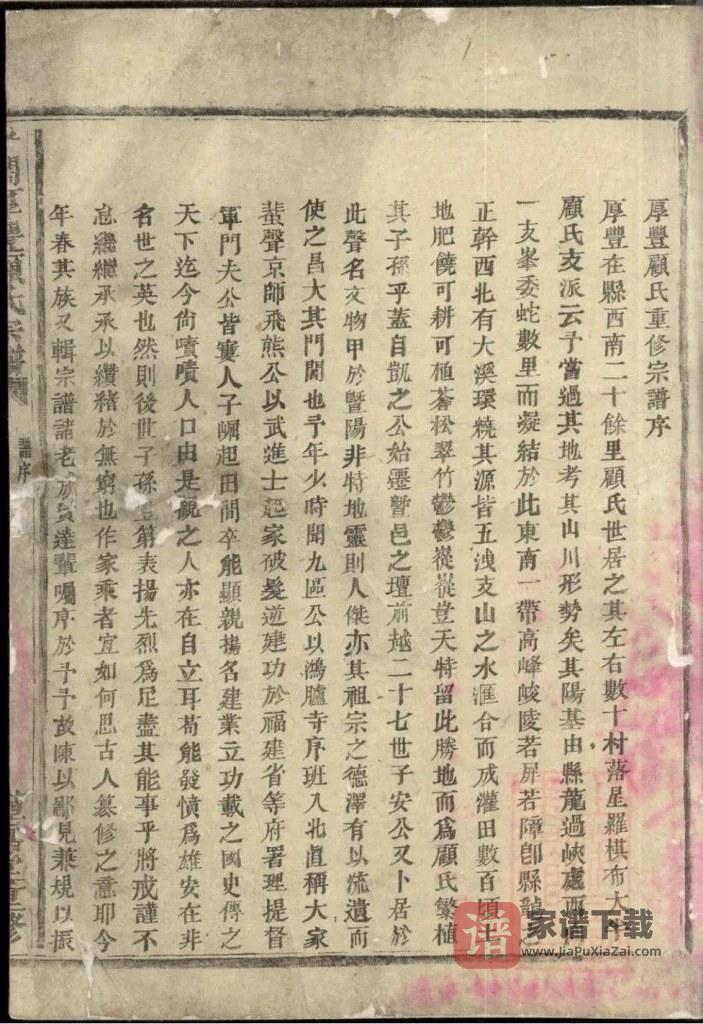 厚豐顧氏重修宗譜序
厚豐在縣西南二十餘里顧氏世居之其左右數十村落星羅棋布大
顧氏支派云予嘗過其地考其山川形勢矣其陽基由縣龍過峽處西
一支峯委蛇數里而凝結於此東南一帶高峰峻陵若屏若障卽縣龍之
正幹西北有大溪環繞其源皆五洩支山之水滙合而成灌田數百頃土
地肥饒可耕可植蒼松翠竹鬱鬱蓯蓯豈天特留此勝地而爲顧氏繁植
其子孫乎蓋自凱之公始遷暨邑之壇前越二十七世子安公又卜居於
此聲名文物甲於暨陽非特地靈則人傑亦其祖宗之德澤有以流遺而
使之昌大其門閭也予年少時聞九區公以鴻臚寺序班入北直稱大家
蜚聲京師飛熊公以武進士起家破髮逆建功於福建省等府署理提督
軍門夫公皆寠人子崛起田間卒能顯親揚名建業立功載之國史傳之
天下迄今尙嘖嘖人口由是觀之人亦在自立耳苟能發憤爲雄安在非
名世之英也然則後世子孫豈第表揚先烈爲足盡其能事乎將戒謹不
怠繼繼承承以纘緒於無窮也作家乘者宜如何思古人纂修之意耶今
年春其族又輯宗譜諸老族賢達輩囑序於予予故陳以鄙見兼規以振
豐顧氏宗譜
譜序
譜
家谱下载
www.JiaPuXiaZai.com